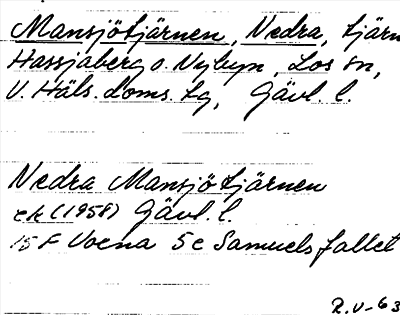 Mansjötjärnen, Nedra, tjärn
Hassjaberg o. Nybyn, Los sn,
V. Häls. doms. tg, Gävl. l.
Nedra Mansjötjärnen
ek (1958) Gävl. l.
15 F Voxna 5c Samuelsfallet
R.V-63